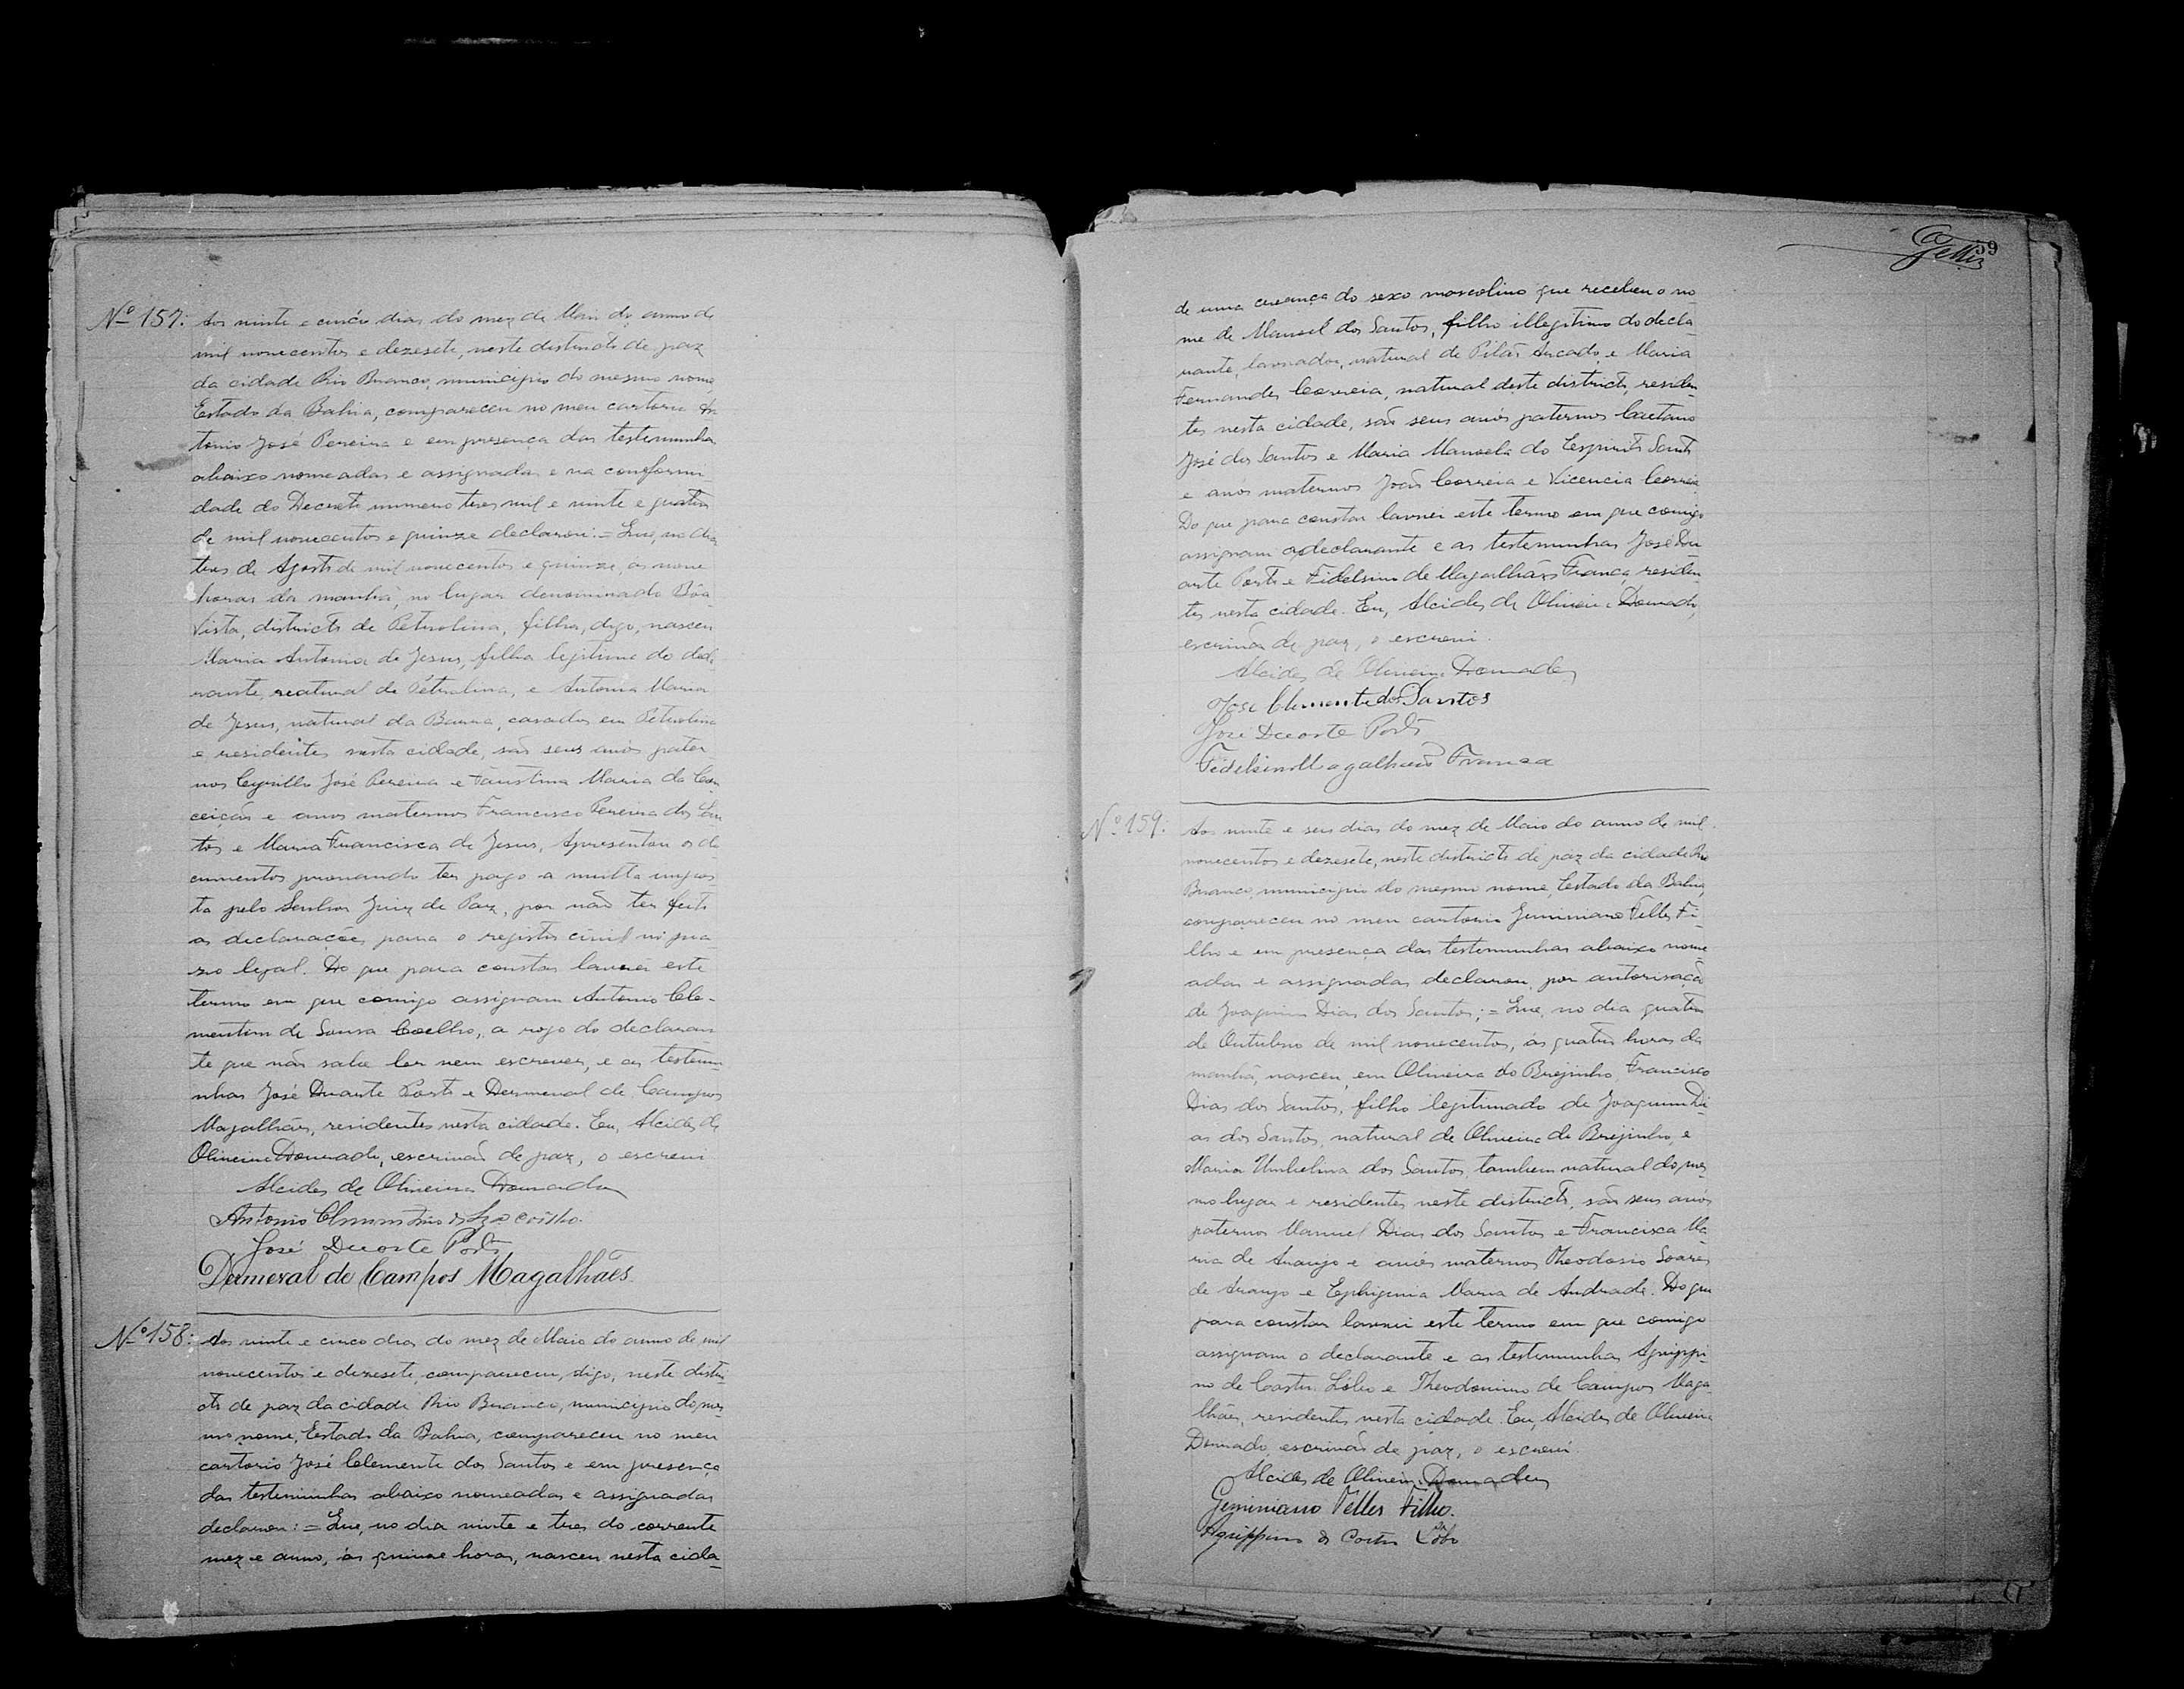 Nº 157: Aos vinte e cinco dias do mez de Maio do anno de
mil novecentos e dezesete, neste districto de paz
da cidade Rio Branco, municipio do mesmo nome,
Estado da Bahia, compareceu no meu cartorio An
tonio José Pereira e em presença das testemunhas
abaixo nomeadas e assignadas e na conformi
dade do Decreto numero tres mil e vinte e quatro
de mil novecentos e quinze declarou: = Que, no dia
tres de Agosto de mil novecentos e quinze, as nove
horas da manhã, no lugar denominado Bôa
Vista, districto de Petrolina, filha, digo, nasceu
Maria Antonia de Jesus, filha legitima do decla
rante, natural de Petrolina, e Antonia Maria
de Jesus, natural da Barra, casados em Petrolina
e residentes nesta cidade, são seus avós pater
nos Cyrillo José Pereira e Faustina Maria da Con
ceição e avos maternos Francisco Pereira dos San
tos e Maria Francisca de Jesus. Apresentou os do
cumentos provando ter pago a multa impos
ta pelo Senhor Juiz de Paz, por não ter feito
as declarações para o registro civil no pra
zo legal. Do que para constar lavrei este
termo em que comigo assignam Antonio Cle-
mentino de Sousa Coelho, a rogo do declaran
te que não sabe ler nem escrever, e as testemu
nhas José Duarte Porto e Dermeval de Campos
Magalhães, residentes nesta cidade. Eu, Alcides de
Oliveira Dourado, escrivão de paz, o escrevi
Alcides de Oliveira Dourado
Antonio Clementino de Sza Coêlho.
José Duarte Porto
Dermeval de Campos Magalhães
Nº 158: Aos vinte e cinco dias do mez de Maio do anno de mil
novecentos e dezesete, compareceu, digo, neste distri
cto de paz da cidade Rio Branco, municipio do mes
mo nome, Estado da Bahia, compareceu no meu
cartorio José Clemente dos Santos e em presença
das testemunhas abaixo nomeadas e assignadas
declarou: = Que, no dia vinte e tres do corrente
mez e anno, ás quinze horas, nasceu nesta cida-
59
de uma creança do sexo mascolino que recebeu o no
me de Manoel dos Santos, filho illegitimo do decla
rante, lavrador, natural de Pilão Arcado, e Maria
Fernandes Correia, natural deste districto, residen
tes nesta cidade, são seus avós paternos Caetano
José dos Santos e Maria Manoela do Espirito Santo
e avos maternos João Correia e Vicencia Correia
Do que para constar lavrei este termo em que comigo
assignam o declarante e as testemunhas José Du
arte Porto e Fidelsino de Magalhães França, residen
tes nesta cidade. Eu, Alcides de Oliveira Dourado,
escrivão de paz, o escrevi.
Alcides de Oliveira Dourado
José Clemente dos Santos
José Duarte Porto
Fidelsino Magalhães Franca
Nº 159: Aos vinte e seis dias do mez de Maio do anno de mil
novecentos e dezesete, neste districto de paz da cidade Rio
Branco, municipio do mesmo nome, Estado da Bahia,
compareceu no meu cartorio Geminiano Telles Fi-
lho e em presença das testemunhas abaixo nome
adas e assignadas declarou, por autorisação
de Joaquim Dias dos Santos; = Que, no dia quatro
de Outubro de mil novecentos, ás quatro horas da
manhã, nasceu, em Oliveira do Brejinho, Francisco
Dias dos Santos, filho legitimado de Joaquim Di
as dos Santos, natural de Oliveira do Brejinho, e
Maria Umbelina dos Santos, tambem natural do mes
mo lugar e residentes neste districto, são seus avós
paternos Manuel Dias dos Santos e Francisca Ma
ria de Araujo e avós maternos Theodosio Soares
de Araujo e Ephigenia Maria de Andrade. Do que
para constar lavrei este termo em que comigo
assignam o declarante e as testemunhas Agrippi-
no de Castro Lobo e Theodomiro de Campos Maga
lhães, residentes nesta cidade. Eu, Alcides de Oliveira
Dourado, escrivão de paz, o escrevi.
Alcides de Oliveira Dourado
Geminiano Telles Filho.
Agrippino de Castro Lobo